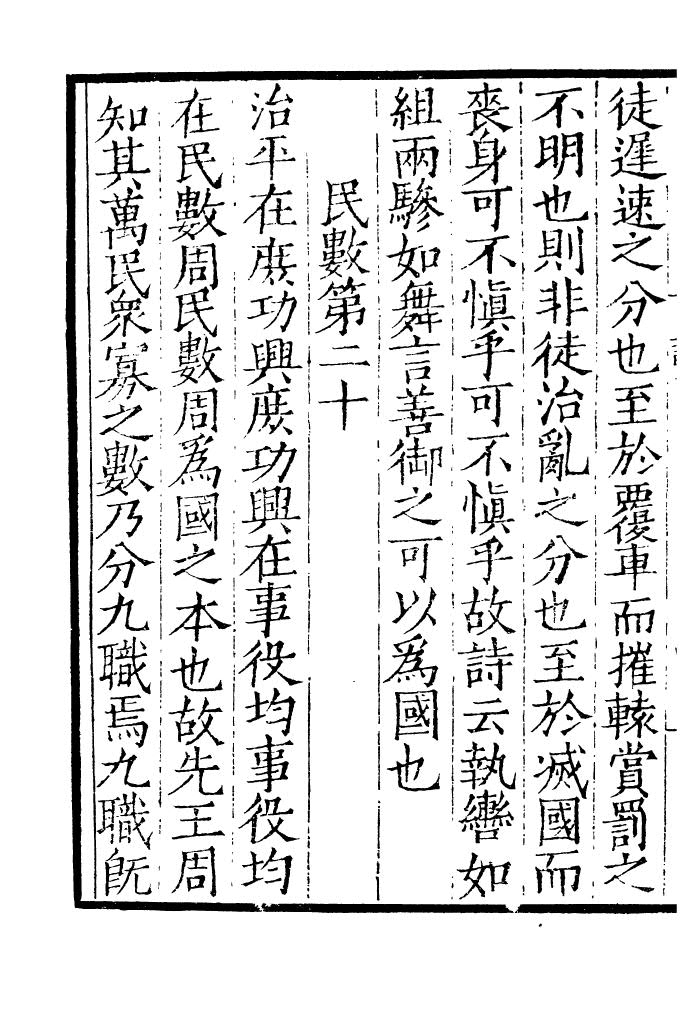 徒遲速之分也至於覆車而摧轅賞罰之
不明也則非徒治亂之分也至於滅國而
喪身可不慎乎可不慎乎故詩云執轡如
組兩驂如舞言善御之可以為國也
民數第二十
治平在庶功興庶功興在事役均事役均
在民數周民數周為國之本也故先王周
知其萬民衆寡之數乃分九職焉九職既